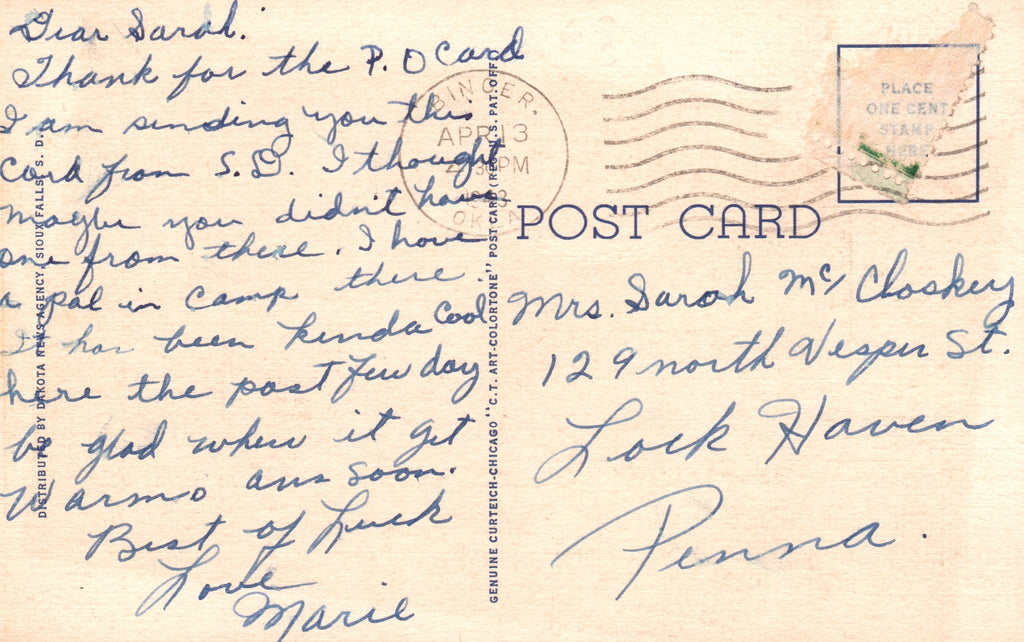 Dear Sarah.
Thank for the P.O Card
I am sending you this
Card from S.D. I thought
maybe you didn't have
one from there. I have
a pal in Camp there.
It has been kinda Cool
here the past few day
be glad when it get
Warm ans soon.
Best of Luck
Love
Marie
DISTRIBUTED BY DAKOTA NEWS AGENCY, SIOUX FALLS, S. D.
GENUINE CURTEICH-CHICAGO "C.T. ART-COLORTONE" POST CARD (REG. U.S. PAT. OFF.)
BINGER,
APR 13
30 PM
OKLA
PLACE
ONE CENT
STAMP
HERE
POST CARD
Mrs. Sarah Mc Closkey
129 north Vesper St.
Lock Haven
Penna.